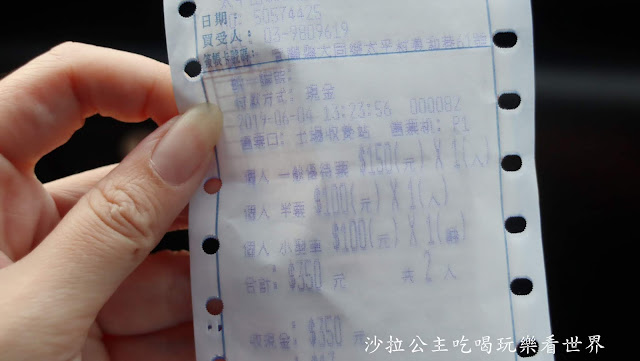 日期: 50574425
買受人: 03-9809619
宜蘭縣大同鄉太平村
付款方式: 現金
2019-06-04 13:23:56 000082
售票口: 土場收費站 售票機: 21
個人 一般優待票 $150(元) X 1(人)
個人 半票 $100(元) X 1(人)
個人 小型車 $100(元) X 1(輛)
合計: $350 元 共 2 人
收現金: $350 元
沙拉公主吃喝玩樂看世界